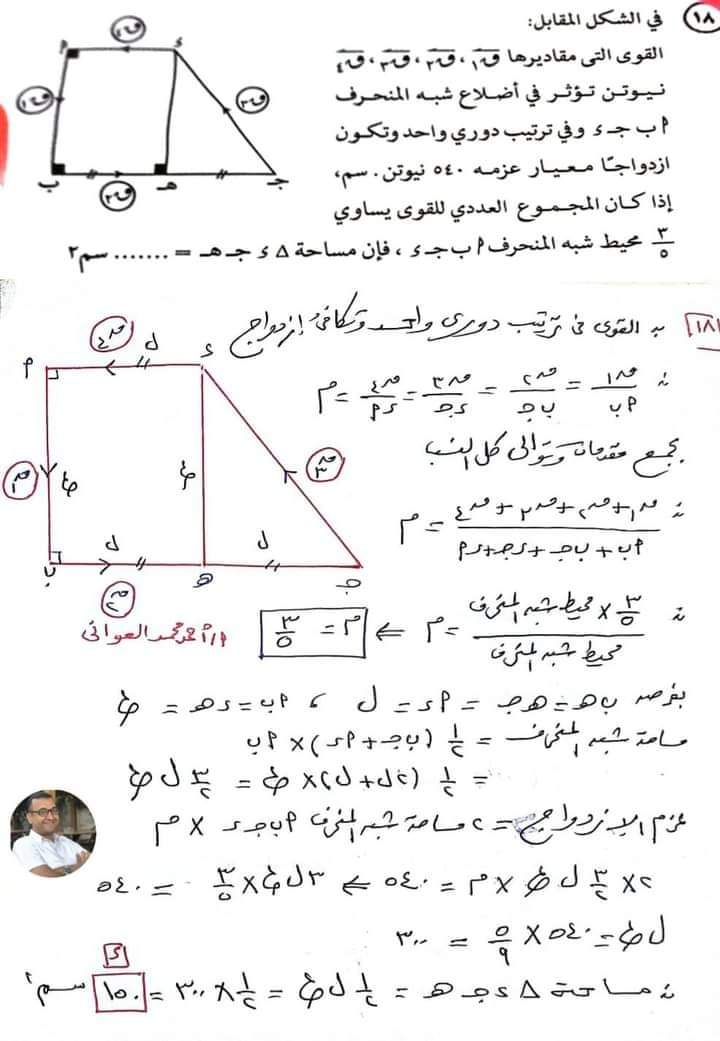 ١٨ في الشكل المقابل:
القوى التى مقاديرها ق١، ق٢، ق٣، ق٤
نيوتن تؤثر في أضلاع شبه المنحرف
أ ب جـ ء وفي ترتيب دوري واحد وتكون
ازدواجًا معيار عزمه ٥٤٠ نيوتن . سم،
إذا كان المجموع العددي للقوى يساوي
٣/٥ محيط شبه المنحرف أ ب جـ ء ، فإن مساحة Δ ء جـ هـ = ....... سم٢
أ ء
ق٤ ق١ ق٣ ق٢
ب هـ جـ
١٨ ∵ القوى فى ترتيب دورى واحد وتكافئ إزدواج
∴ ق١/أب = ق٢/ب جـ = ق٣/ء جـ = ق٤/ء أ = م
بجمع مقدمات وتوالى كل النسب
∴ (ق١ + ق٢ + ق٣ + ق٤)/(أب + ب جـ + ء جـ + ء أ) = م
∴ (٣/٥ × محيط شبه المنحرف)/(محيط شبه المنحرف) = م ⇐ م = ٣/٥
أ ء
ق٤ ل ق١ ع ع ق٣ ل ل ق٢
ب هـ جـ
أ/أحمد محمد العوانى
بفرض ب هـ = هـ جـ = أ ء = ل ، أب = ء هـ = ع
مساحة شبه المنحرف = ١/٢ (ب جـ + أ ء) × أب
= ١/٢ (٢ل + ل) × ع = ٣/٢ ل ع
عزم الإزدواج = ٢ مساحة شبه المنحرف أ ب جـ ء × م
٢ × ٣/٢ ل ع × م = ٥٤٠ ⇐ ٣ ل ع × ٣/٥ = ٥٤٠
ل ع = ٥٤٠ × ٥/٩ = ٣٠٠
∴ مساحة Δ ء جـ هـ = ١/٢ ل ع = ١/٢ × ٣٠٠ = ١٥٠ سم٢